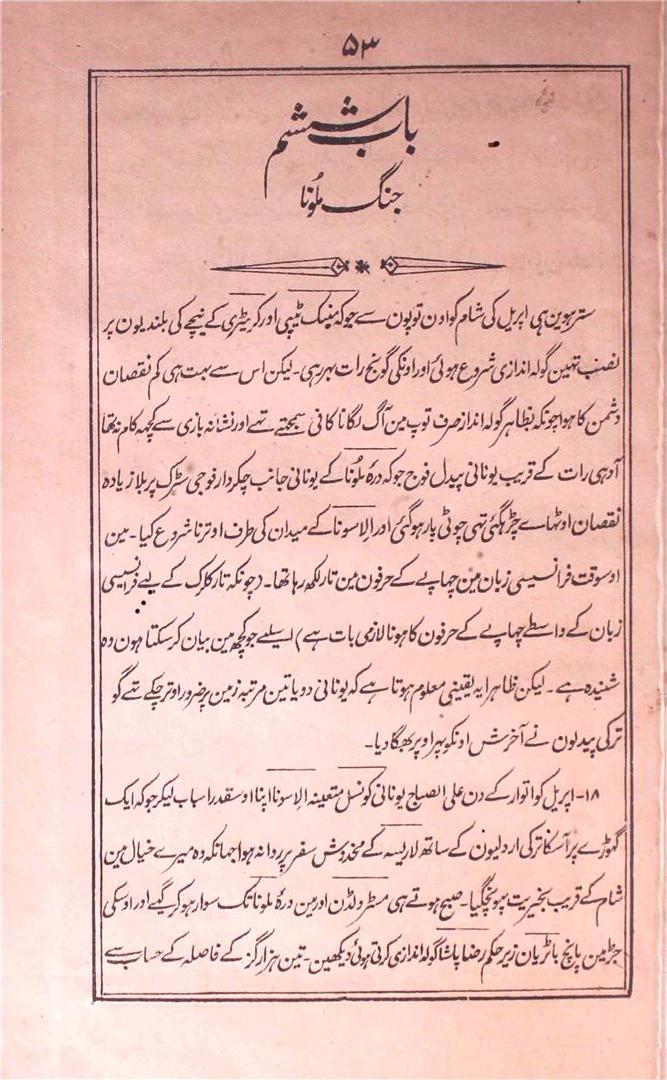 ۵۳
باب ششم
جنگ ملُونا
سترہوین ہی اپریل کی شام کو اون توپون سے جو کہ مینک ٹیپی اور کریٹری کے نیچے کی بلندیون پر
نصب تہین گولہ اندازی شروع ہوئی اور اونکی گونج رات بہر رہی۔ لیکن اس سے بہت ہی کم نقصان
دشمن کا ہوا چونکہ بظاہر گولہ انداز صرف توپ مین آگ لگانا کافی سمجہتے تہے اور نشانہ بازی سے کچہہ کام نہ تہا
آدہی رات کے قریب یونانی پیدل فوج جو کہ درۂ ملُونا کے یونانی جانب چکردار فوجی سڑک پر بلا زیادہ
نقصان اوٹہاے چڑہگئی تہی چوٹی پار ہوگئی اور الاسونا کے میدان کی طرف اوترنا شروع کیا۔ مین
اوسوقت فرانسیسی زبان مین چہاپے کے حرفون مین تار لکھ رہا تہا۔ (چونکہ تار کلرک کے لیے فرانسیسی
زبان کے واسطے چہاپے کے حرفون کا ہونا لازمی بات ہے) اسیلیے جو کچھ مین بیان کر سکتا ہون وہ
شنیدہ ہے۔ لیکن ظاہرا یہ یقینی معلوم ہوتا ہے کہ یونانی دو یا تین مرتبہ زمین پر ضرور اوتر چکے تہے گو
ترکی پیدلون نے آخرش اونکو پہر اوپر بھگا دیا۔
۱۸- اپریل کو اتوار کے دن علی الصباح یونانی کونسل متعینہ الاسونا اپنا اوسقدر اسباب لیکر جو کہ ایک
گہوڑے پر آسکا ترکی اردلیون کے ساتھ لاریسہ کے مخدوش سفر پر روانہ ہوا جہانکہ وہ میرے خیال مین
شام کے قریب بخیریت پہونچگیا۔ صبح ہوتے ہی مسٹر ولڈن اور مین درۂ ملونا تک سوار ہو کر گیے اور اوسکی
جڑ مین پانچ باٹریان زیر حکم رضا پاشا گولہ اندازی کرتی ہوئی دیکھین۔ تین ہزار گز کے فاصلہ کے حساب سے